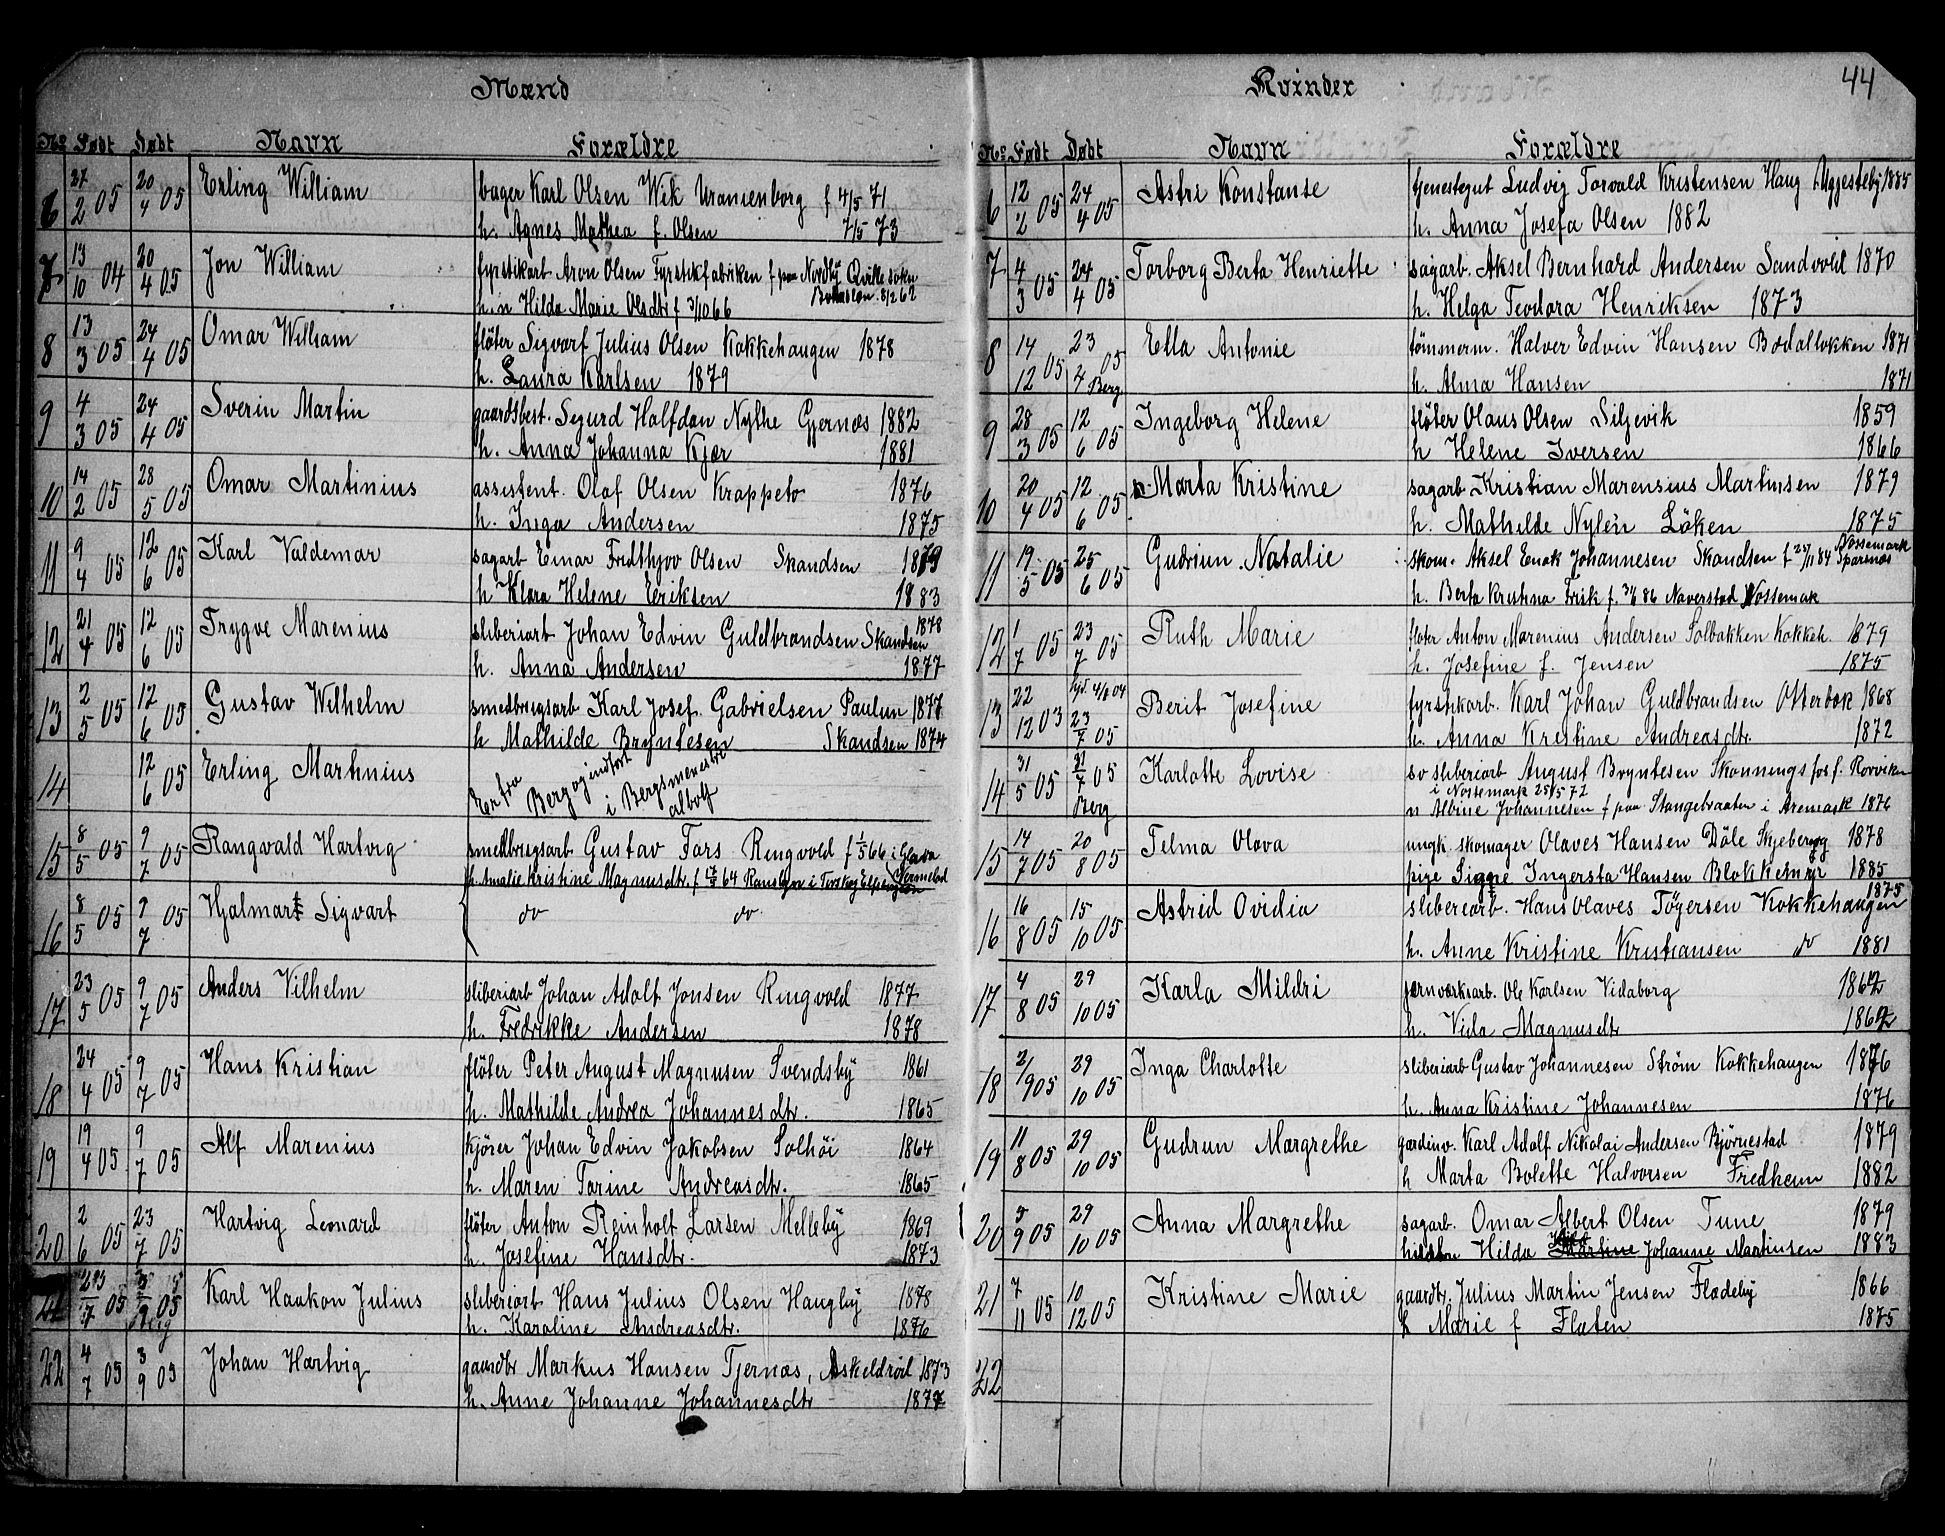 44
Mænd
No Født Døbt Navn Forældre
6 27/2 05 20/4 05 Erling William bager Karl Olsen Wik Uranienborg f 4/5 71
h. Agnes Mathea f. Olsen 7/5 73
7 13/10 04 20/4 05 Jon William fyrstikarb Aron Olsen Fyrstikfabriken f paa Nordby Qville sokn
h.n Hilda Marie Olsdtr f 3/10 66 8/2 62
8 13/3 05 24/4 05 Omar William fløter Sigvart Julius Olsen Kokkehaugen 1878
h. Laura Karlsen 1879
9 4/3 05 24/4 05 Sverin Martin gaardsbest. Sigurd Halfdan Nythe Gjernæs 1882
h. Anna Johanna Kjær 1881
10 14/2 05 28/5 05 Omar Martinius assistent. Olaf Olsen Krappeto 1876
h. Inga Andersen 1875
11 9/4 05 12/6 05 Karl Valdemar sagarb Einar Fridthjov Olsen Skandsen 1879
h Klara Helene Eriksen 1883
12 21/4 05 12/6 05 Trygve Marenius sliberiarb Johan Edvin Guldbrandsen Skandsen 1878
h. Anna Andersen 1877
13 2/5 05 12/6 05 Gustav Wilhelm smedbrugsarb Karl Josef. Gabrielsen Paulun 1877
h Mathilde Bryntesen Skandsen 1874
14 12/6 05 Erling Martinius Er fra
Berg og indført
i Bergs
15 8/5 05 9/7 05 Rangvald Hartvig smedbrugsarb Gustav Fors Ringvold f 1/5 66 i Glava
h. Amalie Kristine Magnusdtr. f 64 i Torskog Vermeland
16 8/5 05 9/7 05 Hjalmart Sigvart do do
17 23/5 05 9/7 05 Anders Vilhelm sliberiarb Johan Adolf Jonsen Ringvold 1877
h. Fredrikke Andersen 1878
18 24/4 05 9/7 05 Hans Kristian fløter Peter August Magnusen Svendsby 1861
h. Mathilde Andrea Johannesdtr. 1865
19 19/4 05 9/7 05 Alf Marenius kjører Johan Edvin Jakobsen Solhøi 1864
h. Maren Torine Andreasdtr. 1865
20 2/6 05 23/7 05 Hartvig Leonard fløter Anton Reinholt Larsen Melleby 1869
h. Josefine Hansdtr. 1873
21 /7 05 /9 05 Karl Haakon Julius sliberiarb Hans Julius Olsen Haugby 1878
Berg h. Karoline Andreasdtr. 1876
22 4/7 05 3/9 05 Johan Hartvig gaardbr Markus Hansen Tjernæs, Askeldrød 1873
h. Anne Johanne Johannesdtr
Kvinder
No Født Døbt Navn Forældre
6 12/2 05 24/4 05 Astri Konstanse tjenestegut Ludvig Torvald Kristensen Haug i Uggesteby 1885
h. Anna Josefa Olsen 1882
7 4/3 05 24/4 05 Torborg Berta Henriette sagarb. Aksel Bernhard Andersen Sandvold 1870
h. Helga Teodora Henriksen 1873
8 14/12 05 23/4 05 Berg Ella Antonie tømmerm. Halver Edvin Hansen Bodalløkken 1871
h. Alma Hansen 1871
9 28/3 05 12/6 05 Ingeborg Helene fløter Olaus Olsen Siljevik 1859
h Helene Iversen 1866
10 20/4 05 12/6 05 Marta Kristine sagarb Kristian Marensius Martinsen 1879
h. Mathilde Nylén Løken 1875
11 19/5 05 25/6 05 Gudrun Natalie skom. Aksel Enok Johannesen Skandsen f 25/11 84 Nossemark
h. Berta Kristina Frisk f. 86 Naverstad Nossemak
12 1/7 05 23/7 05 Ruth Marie fløter Anton Marenius Andersen Solbakken Kokkeh. 1879
h. Josefine f. Jensen 1875
13 22/12 03 4/6 04 23/7 05 Berit Josefine fyrstikarb. Karl Johan Guldbrandsen Otterbæk 1868
h. Anna Kristine Andreasdtr. 1872
14 31/5 05 /7 05 Berg Karlotte Lovise sv sliberiarb August Bryntesen Skonningsfos f. Rørviken
i Nossemark 25/5 72
n Albine Johannesen f paa Stangebraaten i Aremark 1876
15 14/7 05 20/8 05 Telma Olava ungk. skomager Olaves Hansen Døle Skjeberg 1878
pige Signe Ingersta Hansen Blokkemyr 1885
16 16/8 05 15/10 05 Astrid Ovidia sliberiarb. Hans Olaves Tøgersen Kokkehaugen 1875
h. Anne Kristine Kristiansen do 1881
17 4/8 05 29/10 05 Karla Mildri jernværksarb. Ole Karlsen Vidaborg 1862
h. Vida Magnusdtr 1862
18 2/9 05 29/10 05 Inga Charlotte sliberiarb Gustav Johannesen Strøm Kokkehaugen 1876
h. Anna Kristine Johannesen 1876
19 11/8 05 29/10 05 Gudrun Margrethe gardinv. Karl Adolf Nikolai Andersen Bjørnestad 1879
h Marta Bolette Halvorsen Fredheim 1882
20 5/9 05 29/10 05 Anna Margrethe sagarb. Omar Albert Olsen Tune 1879
Hilda Martine Johanne Martinsen 1883
21 7/11 05 10/12 05 Kristine Marie gaardbr. Julius Martin Jensen Fladeby 1866
h Marie f Flaten 1875
22